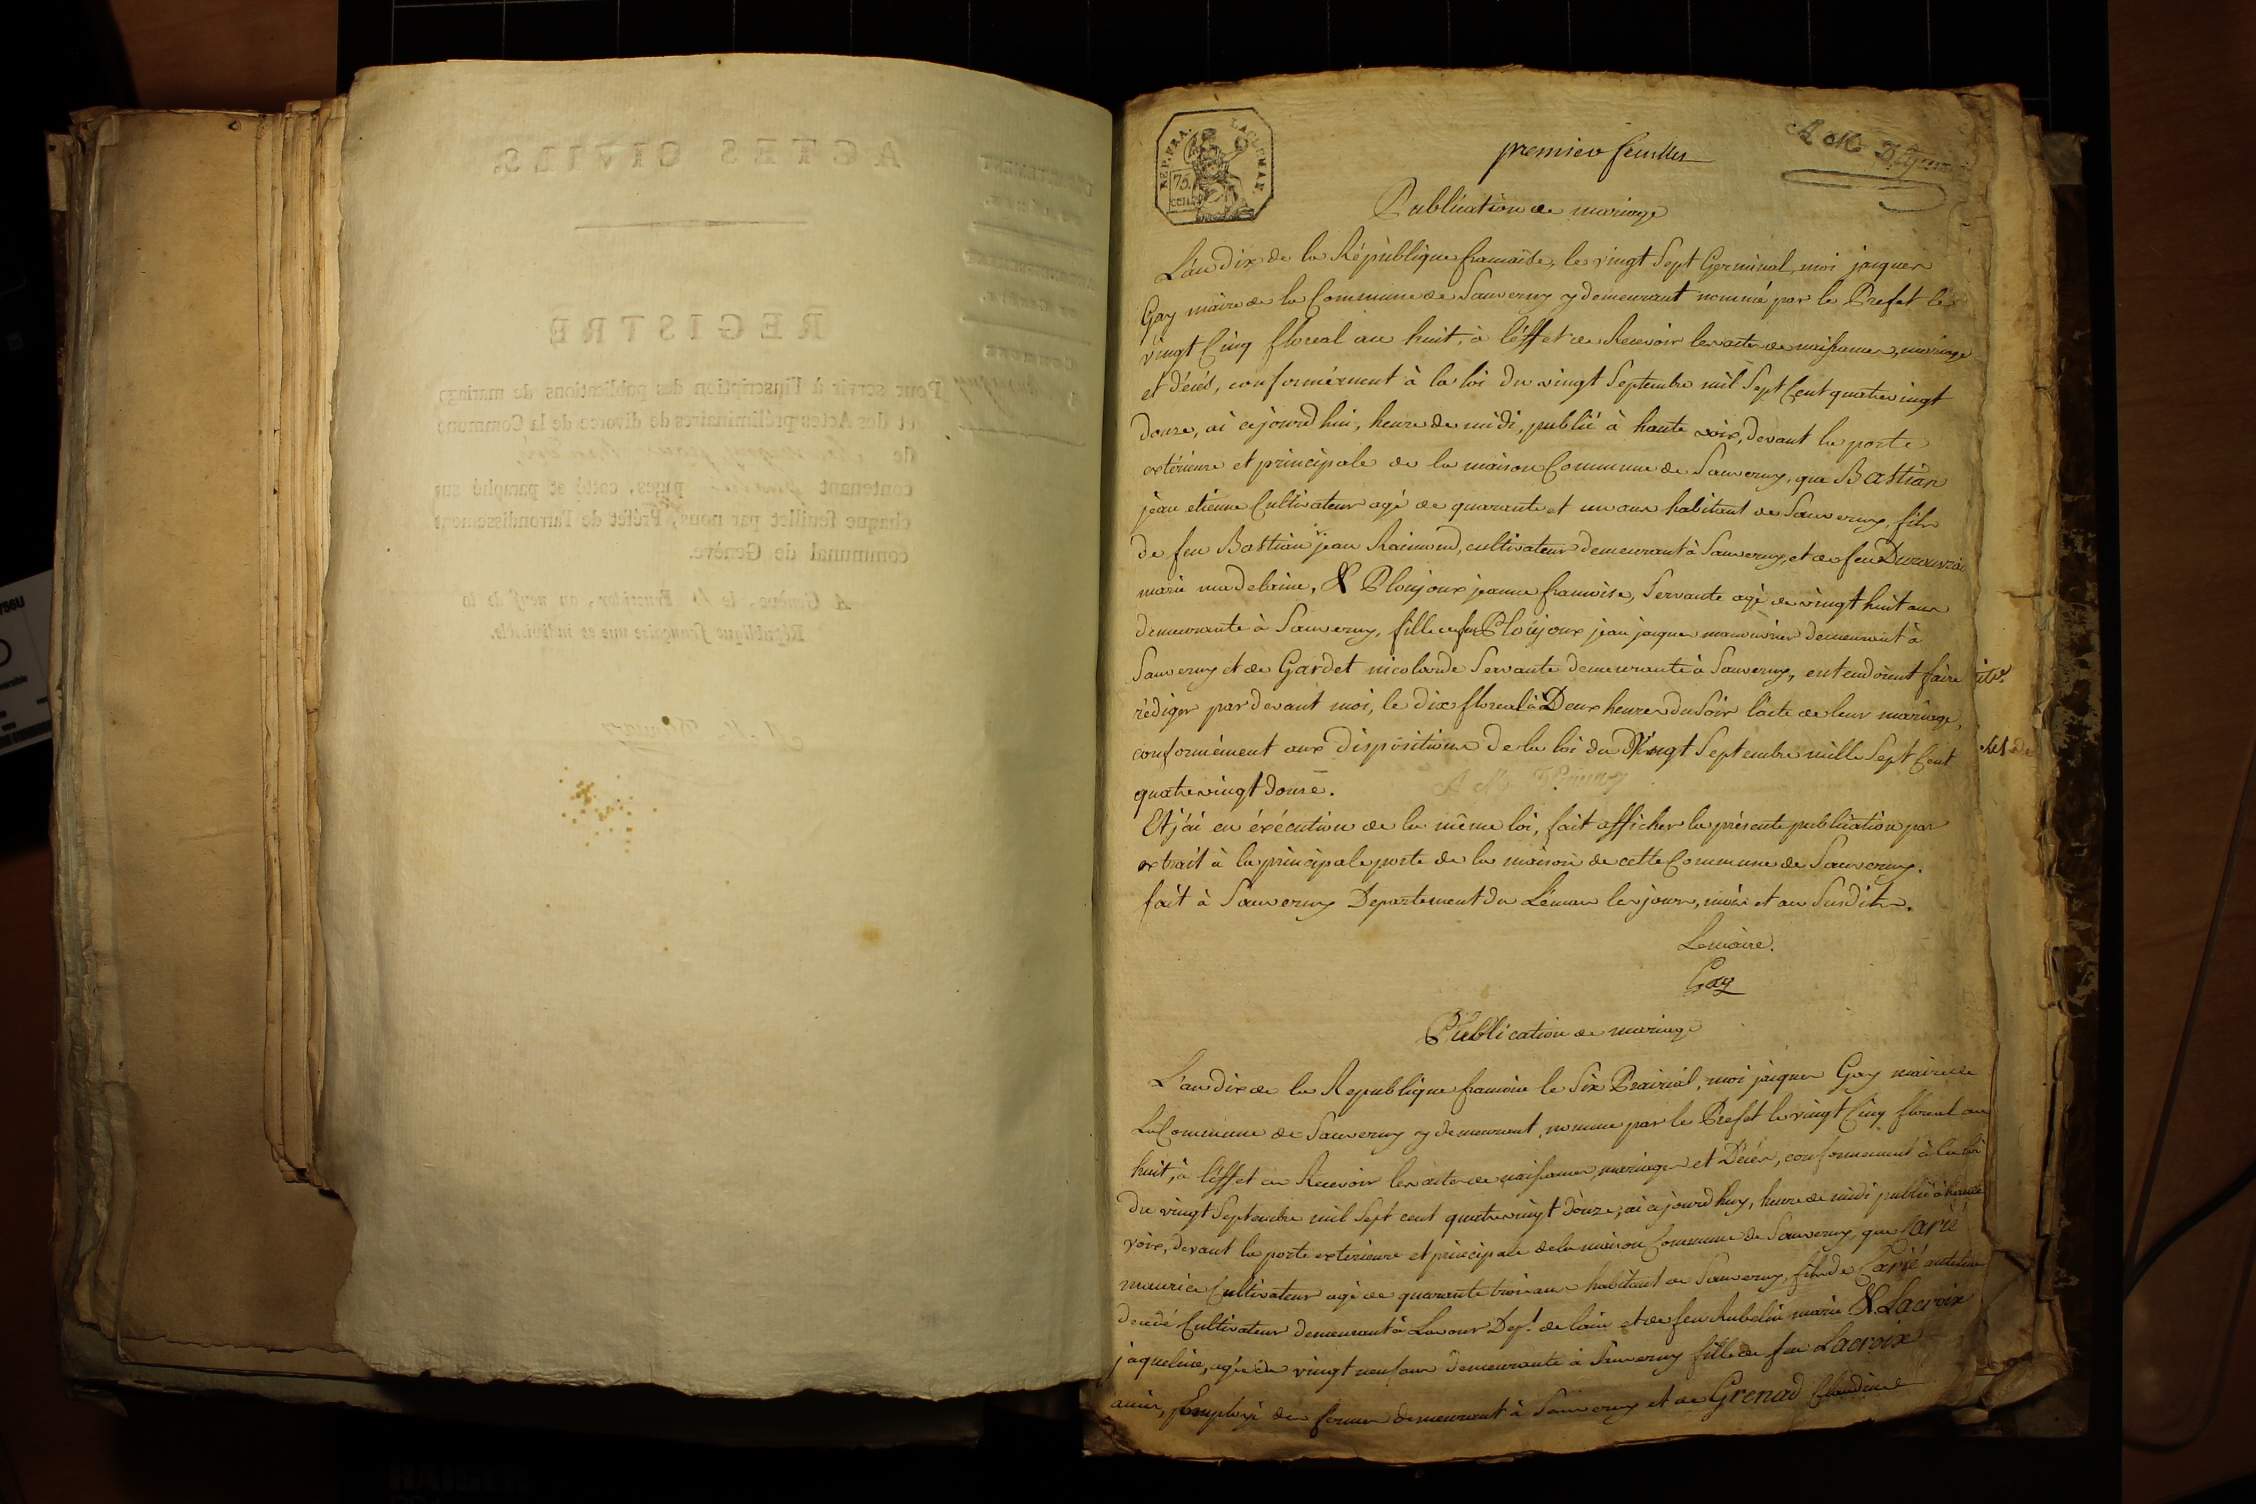 ACTES CIVILS.
REGISTRE
Pour servir à l'inscription des publications de mariage
et des Actes préliminaires de divorce de la Commune
de
contenant pages, cotté et paraphé sur
chaque feuillet par nous, Préfet de l'arrondissement
communal de Genève.
A Genève, le Fructidor, an neuf de la
République française une et indivisible.
DÉPARTEMENT
COMMUNE
REP. FRA.
75.
CENT.
premier feuillet
Publication de mariage
L'an dix de la République francaise, le vingt Sept Germinal, moi jaques
Gay maire de la Commune de Sauverny y demeurant nommé par le Prefet le
vingt Cinq floreal an huit, à l'éffet de Recevoir les actes de naissances, mariage
et décés, conformément à la loi du vingt Septembre mil Sept Cent quatrevingt
douze, ai cejourdhui, heure de midi, publié à haute voix, devant la porte
extérieure et principale de la maison Commune de Sauverny, que Bastian
jean etienne Cultivateur agé de quarante et un ans habitant de Sauverny, fils
de feu Bastian jean Raimond, cultivateur demeurant à Sauverny, et de feu
marie madelaine, & Ploujoux jeanne francoise, Servante agé de vingt huit ans
demeurante à Sauverny, fille de feu Ploujoux jean jaques manouvrier demeurant à
Sauverny et de Gardet nicolarde Servante demeurante à Sauverny, entendoient faire
rédiger pardevant moi, le dix floreal à Deux heures du Soir l'acte de leur mariage,
conformément aux dispositions de la loi du Vingt Septembre mille Sept Cent
quatrevingt douze.
Et j'ai en éxécution de la même loi, fait afficher la présente publication par
extrait à la principale porte de la maison de cette Commune de Sauverny.
fait à Sauverny Departement du Léman les jour, mois et an Susdits.
Le maire.
Gay
Publication de mariage
L'an dix de la Republique francoise le Six Prairial, moi jaques Gay maire de
La Commune de Sauverny y demeurant, nommé par le Prefet le vingt Cinq floreal an
huit, à l'éffet de Recevoir les actes de naissances, mariages et Décés, conformement à la loi
du vingt Septembre mil Sept cent quatrevingt douze, ai cejourdhuy, heure de midi publié à haute
voix, devant la porte exterieure et principale de la maison Commune de Sauverny, que Carié
maurice Cultivateur agé de quarante trois ans habitant de Sauverny, fils de Carié
decedé Cultivateur demeurant à Lavour Dep.t de lain et de feu Rubelin marie & Lacroix
jaqueline, agée de vingt neuf ans demeurante à Sauverny fille de feu Lacroix
Employé des fermes demeurant à Sauverny et de Grenad Claudine